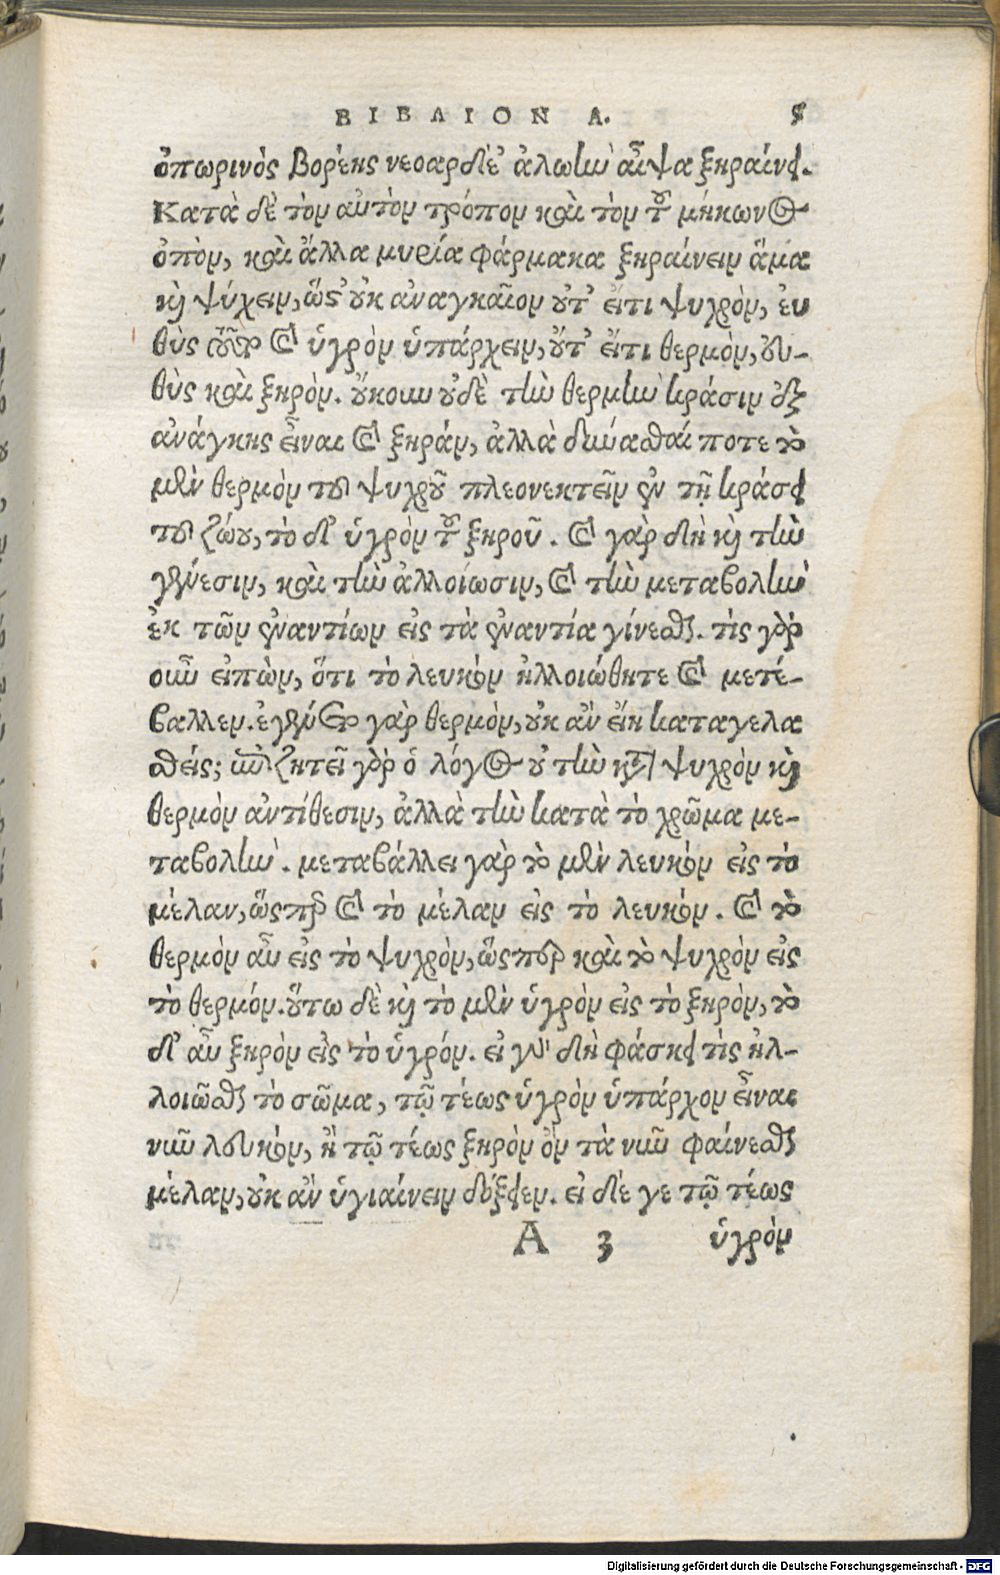 ΒΙΒΛΙΟΝ Α. 5
ὀπωρινὸς Βορέης νεοαρδέ' ἀλωὴν αἶψα ξηραίνει.
Κατὰ δὲ τὸν αὐτὸν τρόπον καὶ τὸν τοῦ μήκωνος
ὀπὸν, καὶ ἄλλα μυρία φάρμακα ξηραίνειν ἅμα
καὶ ψύχειν, ὥστ' οὐκ ἀναγκαῖον οὔτ' εἴ τι ψυχρὸν, εὐ
θὺς τοῦτο καὶ ὑγρὸν ὑπάρχειν, οὔτ' εἴ τι θερμὸν, εὐ-
θὺς καὶ ξηρὸν. οὔκουν οὐδὲ τὴν θερμὴν κράσιν ἐξ
ἀνάγκης εἶναι καὶ ξηρὰν, ἀλλὰ δύνασθαί ποτε τὸ
μὲν θερμὸν τοῦ ψυχροῦ πλεονεκτεῖν ἐν τῇ κράσει
τοῦ ζώου, τὸ δ' ὑγρὸν τοῦ ξηροῦ. καὶ γὰρ δὴ καὶ τὴν
γένεσιν, καὶ τὴν ἀλλοίωσιν, καὶ τὴν μεταβολὴν
ἐκ τῶν ἐναντίων εἰς τὰ ἐναντία γίνεσθαι. τίς γὰρ
οὖν εἰπὼν, ὅτι τὸ λευκὸν ἠλλοιώθη τε καὶ μετέ-
βαλλεν. ἐγένετο γὰρ θερμὸν, οὐκ ἂν εἴη καταγελα
σθείς; ἐπιζητεῖ γὰρ ὁ λόγος οὐ τὴν κατὰ ψυχρὸν καὶ
θερμὸν ἀντίθεσιν, ἀλλὰ τὴν κατὰ τὸ χρῶμα με-
ταβολὴν. μεταβάλλει γὰρ τὸ μὲν λευκὸν εἰς τὸ
μέλαν, ὥσπερ καὶ τὸ μέλαν εἰς τὸ λευκὸν. καὶ τὸ
θερμὸν αὖ εἰς τὸ ψυχρὸν, ὥσπερ καὶ τὸ ψυχρὸν εἰς
τὸ θερμόν. οὕτω δὲ καὶ τὸ μὲν ὑγρὸν εἰς τὸ ξηρὸν, τὸ
δ' αὖ ξηρὸν εἰς τὸ ὑγρόν. εἰ γοῦν δὴ φάσκει τὶς ἠλ-
λοιῶσθαι τὸ σῶμα, τῷ τέως ὑγρὸν ὑπάρχον εἶναι
νῦν λευκὸν, ἢ τῷ τέως ξηρὸν ὂν τὰ νῦν φαίνεσθαι
μέλαν, οὐκ ἂν ὑγιαίνειν δόξειεν. εἰ δέ γε τῷ τέως
A 3 ὑγρὸν
Digitalisierung gefördert durch die Deutsche Forschungsgemeinschaft - DFG